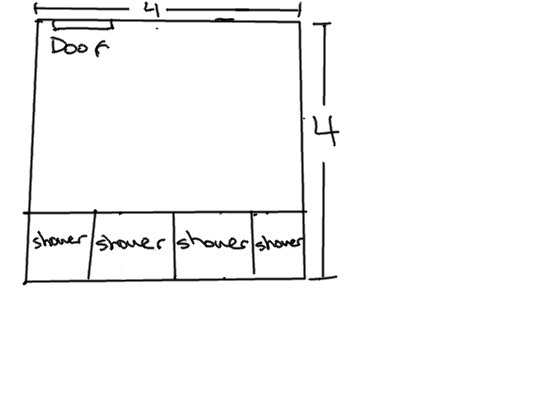 4
Door
4
shower shower shower shower